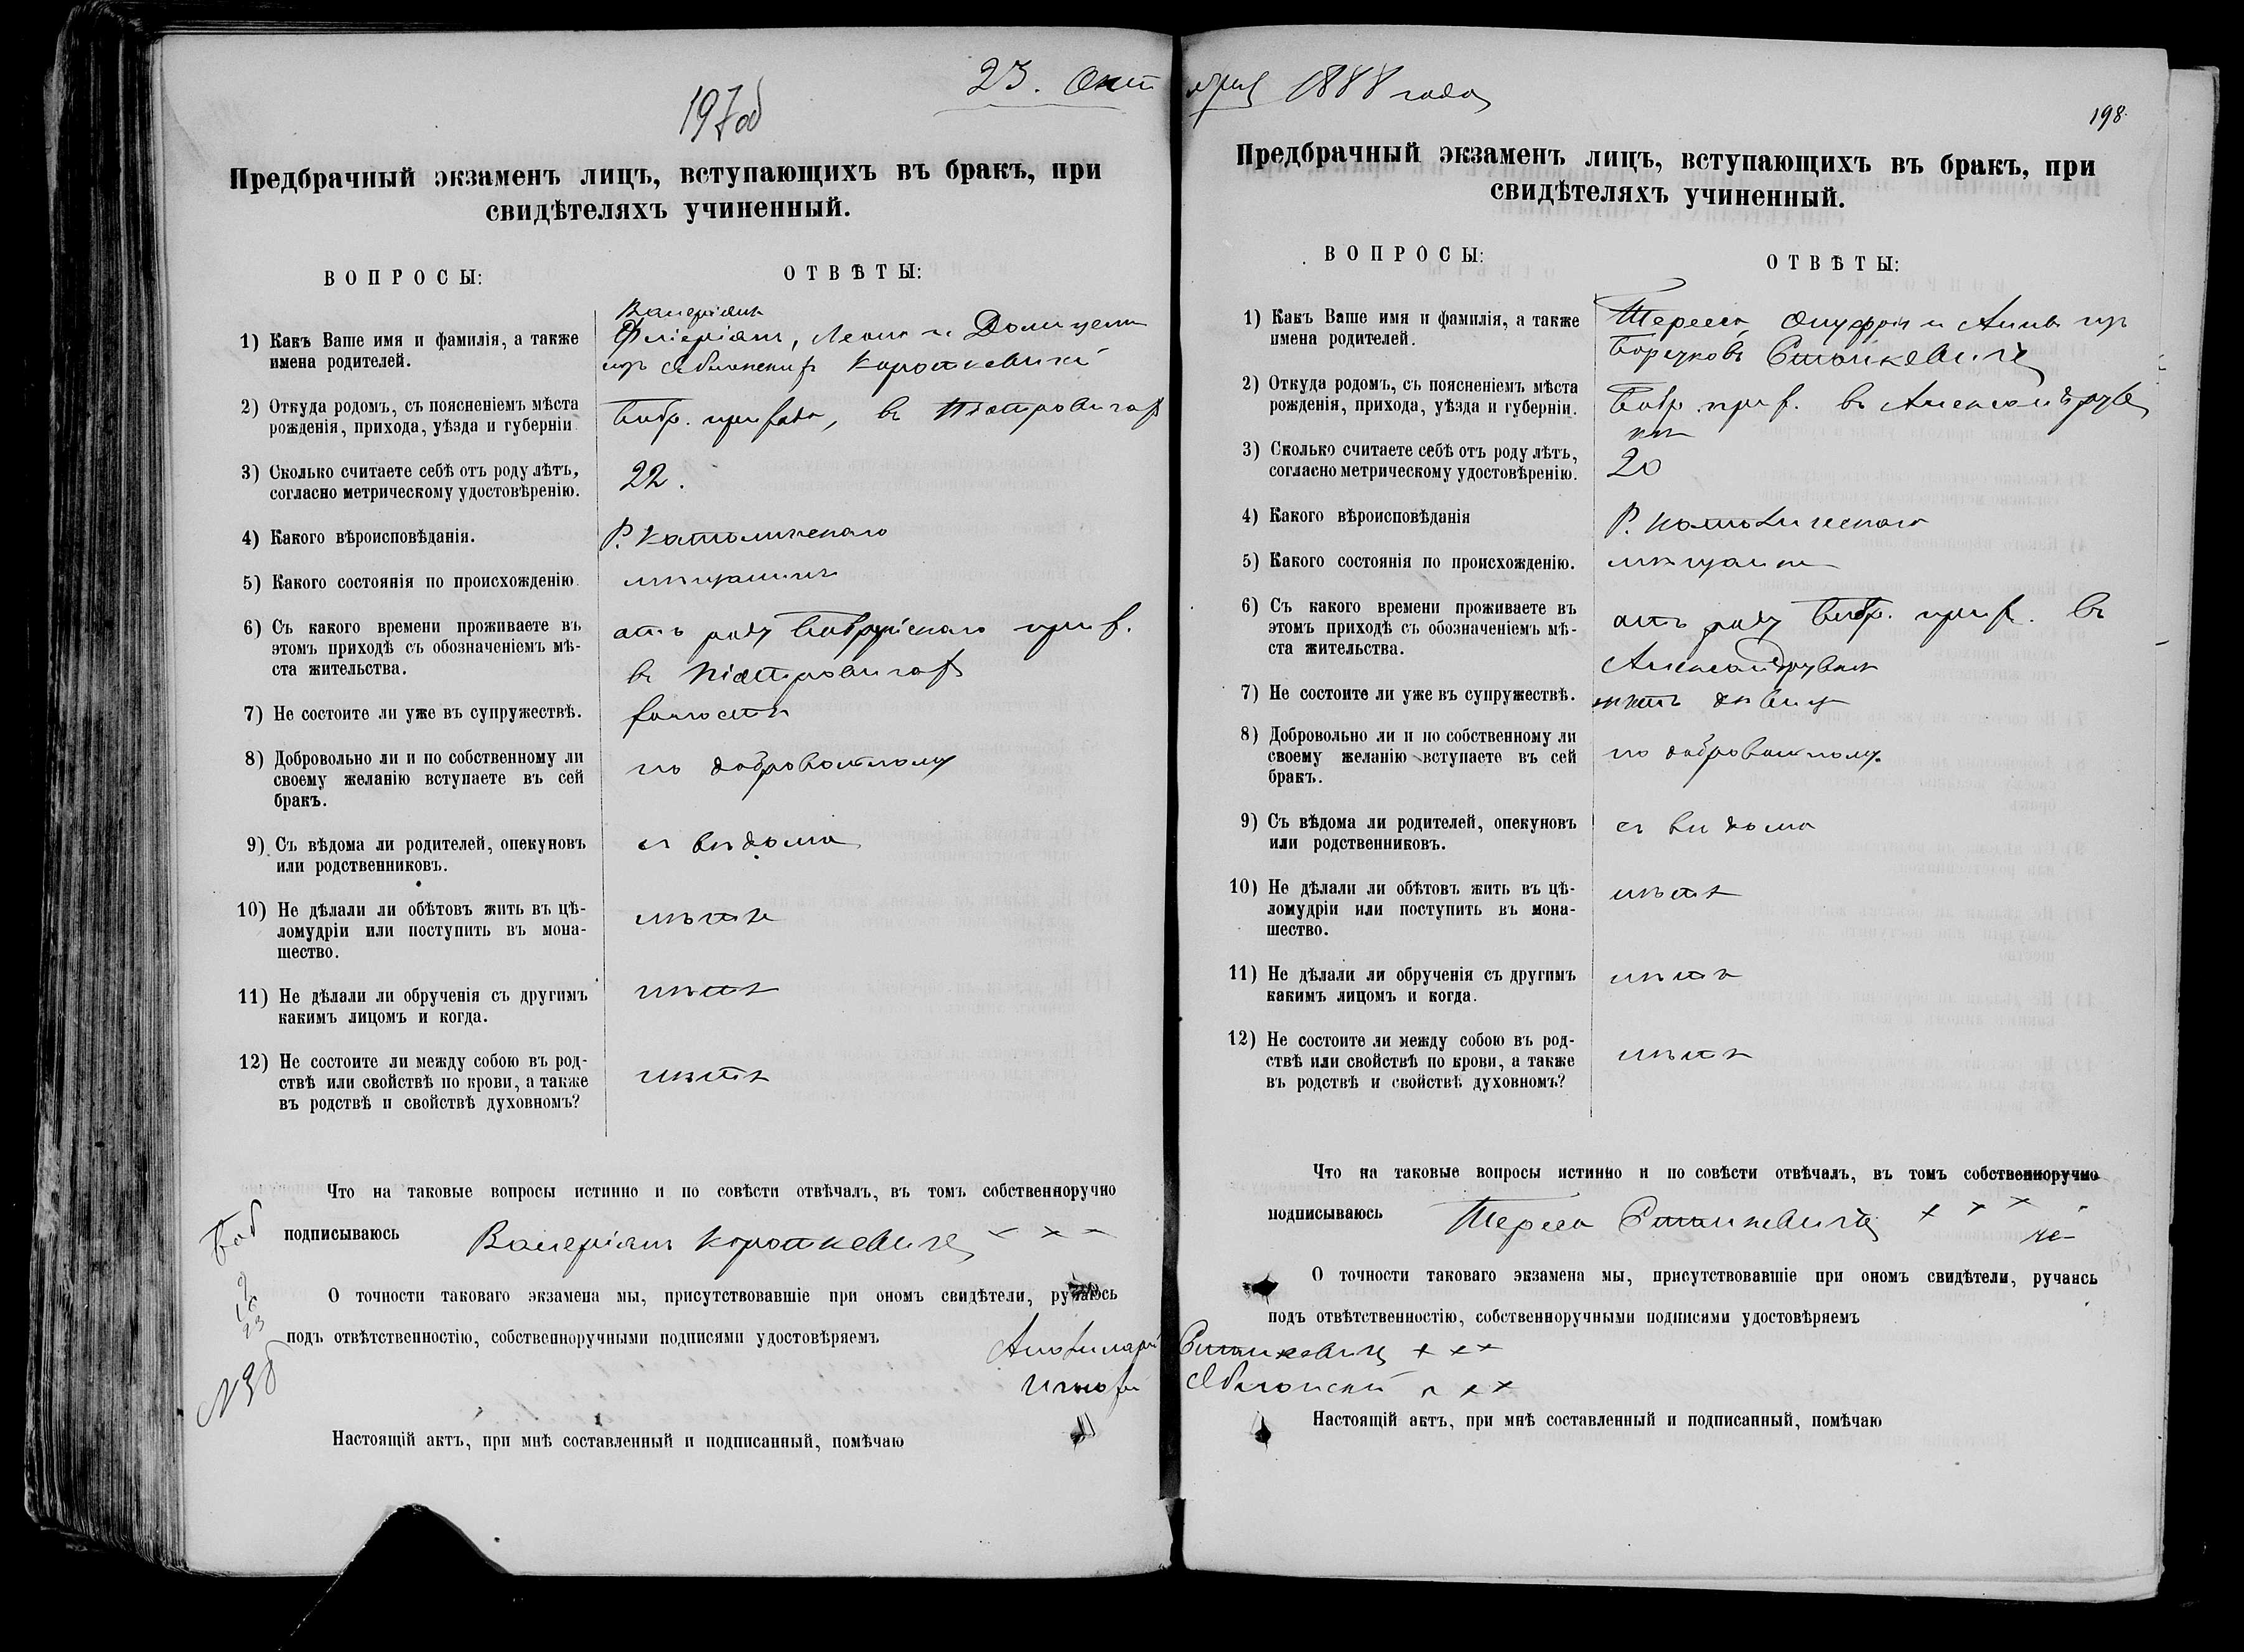 23. Октября 1888 года
197об
Предбрачный экзаменъ лицъ, вступающихъ въ бракъ, при
свидѣтеляхъ учиненный.
ВОПРОСЫ:
ОТВѢТЫ:
1) Какъ Ваше имя и фамилія, а также
имена родителей.
Валеріянъ
Леона и
Короткевичи
2) Откуда родомъ, съ поясненіемъ мѣста
рожденія, прихода, уѣзда и губерніи
Бобр. прихода, въ
3) Сколько считаете себѣ отъ роду лѣтъ,
согласно метрическому удостовѣренію.
22.
4) Какого вѣроисповѣданія.
Р. Католическаго
5) Какого состоянія по происхожденію
мѣщанинъ
6) Съ какого времени проживаете въ
этомъ приходѣ съ обозначеніемъ мѣ-
ста жительства.
отъ роду Бобруйскаго прих.
въ
7) Не состоите ли уже въ супружествѣ.
холостъ
8) Добровольно ли и по собственному ли
своему желанію вступаете въ сей
бракъ.
по добровольному
9) Съ вѣдома ли родителей, опекуновъ
или родственниковъ.
съ вѣдома
10) Не дѣлали ли обѣтовъ жить въ цѣ-
ломудріи или поступить въ мона-
шество.
нѣтъ
11) Не дѣлали ли обрученія съ другимъ
какимъ лицомъ и когда.
нѣтъ
12) Не состоите ли между собою въ род-
ствѣ или свойствѣ по крови, а также
въ родствѣ и свойствѣ духовномъ?
нѣтъ
Что на таковые вопросы истинно и по совѣсти отвѣчалъ, въ томъ собственноручно
подписываюсь Валеріянъ Короткевичъ × × ×
О точности таковаго экзамена мы, присутствовавшіе при ономъ свидѣтели, ручаюсь
подъ отвѣтственностію, собственноручными подписями удостовѣряемъ
Настоящій актъ, при мнѣ составленный и подписанный, помѣчаю
198
Предбрачный экзаменъ лицъ, вступающихъ въ бракъ, при
свидѣтеляхъ учиненный.
ВОПРОСЫ:
ОТВѢТЫ:
1) Какъ Ваше имя и фамилія, а также
имена родителей.
Тереса Онуфрія и Анны изъ
2) Откуда родомъ, съ поясненіемъ мѣста
рожденія, прихода, уѣзда и губерніи.
Бобр. прих. въ
3) Сколько считаете себѣ отъ роду лѣтъ,
согласно метрическому удостовѣренію.
20
4) Какого вѣроисповѣданія
Р. Католическаго
5) Какого состоянія по происхожденію.
мѣщанка
6) Съ какого времени проживаете въ
этомъ приходѣ съ обозначеніемъ мѣ-
ста жительства.
отъ роду Бобр. прих. въ
7) Не состоите ли уже въ супружествѣ.
нѣтъ дѣвица
8) Добровольно ли и по собственному ли
своему желанію вступаете въ сей
бракъ.
по добровольному.
9) Съ вѣдома ли родителей, опекуновъ
или родственниковъ.
съ вѣдома
10) Не дѣлали ли обѣтовъ жить въ цѣ-
ломудріи или поступить въ мона-
шество.
нѣтъ
11) Не дѣлали ли обрученія съ другимъ
какимъ лицомъ и когда.
нѣтъ
12) Не состоите ли между собою въ род-
ствѣ или свойствѣ по крови, а также
въ родствѣ и свойствѣ духовномъ?
нѣтъ
Что на таковые вопросы истинно и по совѣсти отвѣчалъ, въ томъ собственноручно
подписываюсь Тереса × × ×
О точности таковаго экзамена мы, присутствовавшіе при ономъ свидѣтели, ручаясь
подъ отвѣтственностію, собственноручными подписями удостовѣряемъ
Настоящій актъ, при мнѣ составленный и подписанный, помѣчаю